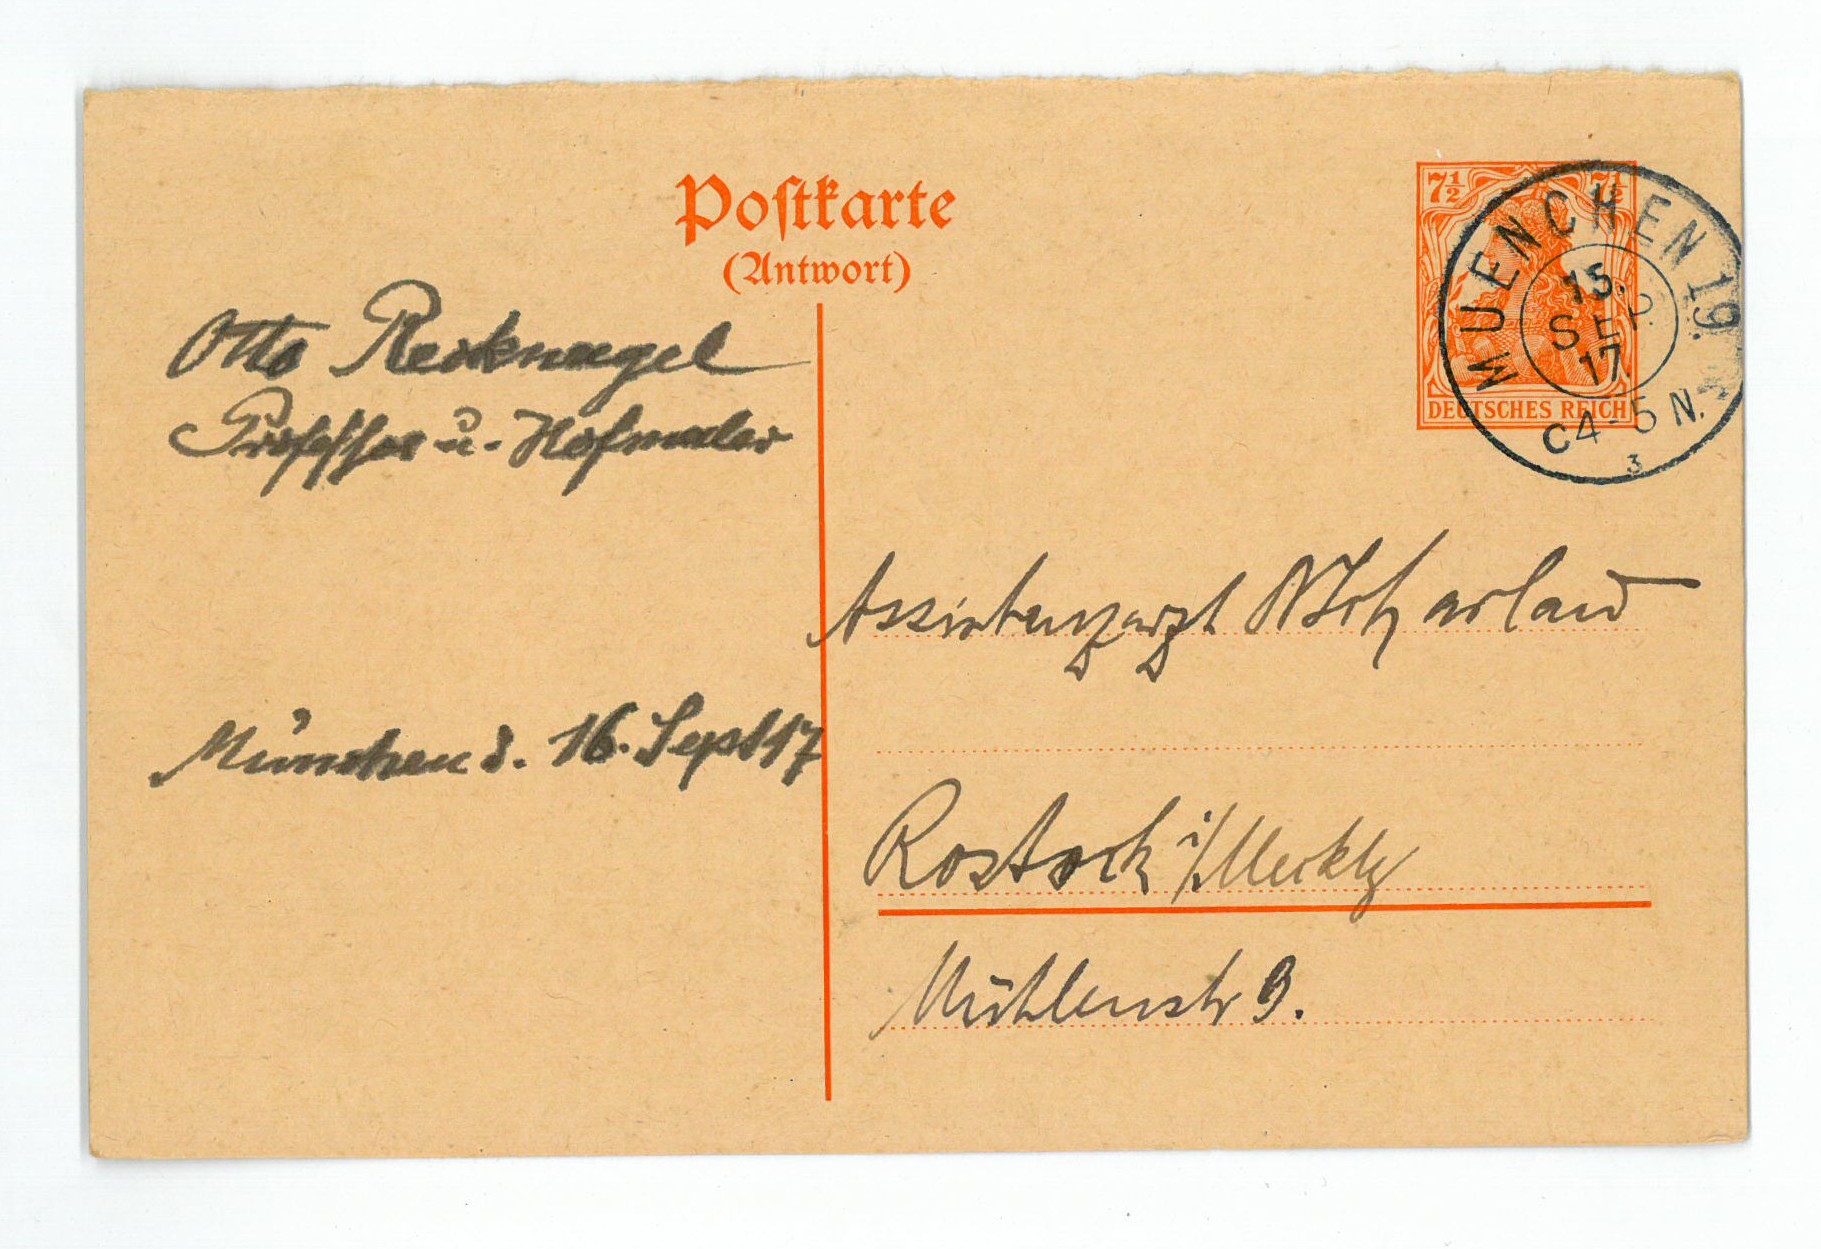 Postkarte
(Antwort)
7½ 7½
DEUTSCHES REICH
MUENCHEN 19.
15.
SEP.
17
C4-5N.
3
Otto Recknagel
Professor u. Hofmaler
München d. 16. Sept 17
Assistenzarzt
Rostock i/Mecklg
Mühlenstr 9.